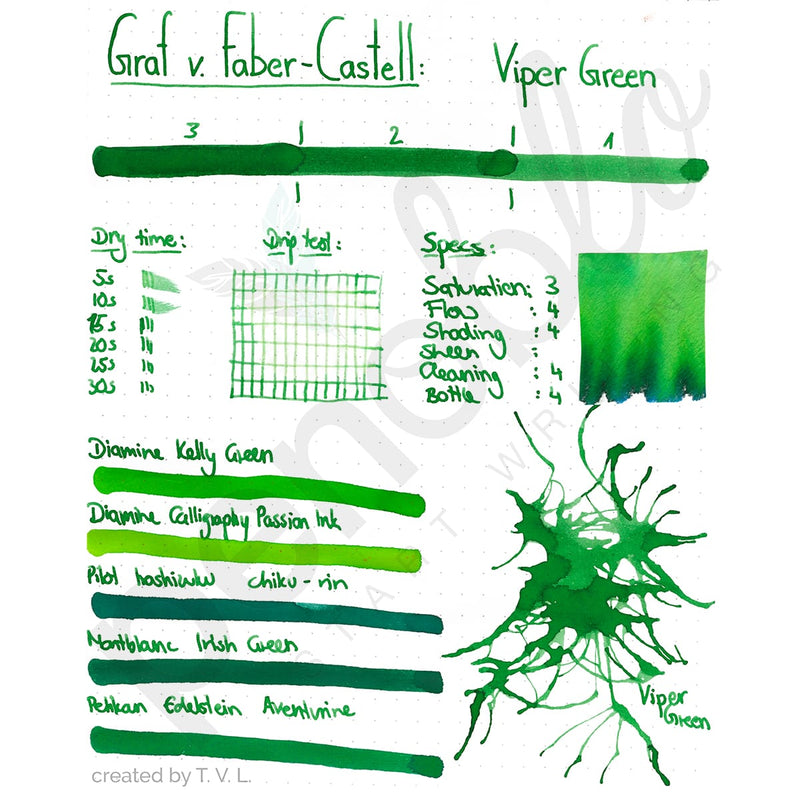 Graf v. Faber-Castell: Viper Green
3 2 1
Dry time: Drip test: Specs:
5s
10s
15s
20s
25s
30s
Saturation: 3
Flow : 4
Shading : 4
Sheen
Cleaning : 4
Bottle : 4
Diamine Kelly Green
Diamine Calligraphy Passion Ink
Pilot hoshiwku chiku-rin
Montblanc Irish Green
Pelikan Edelstein Aventurine
Viper
Green
created by T. V. L.